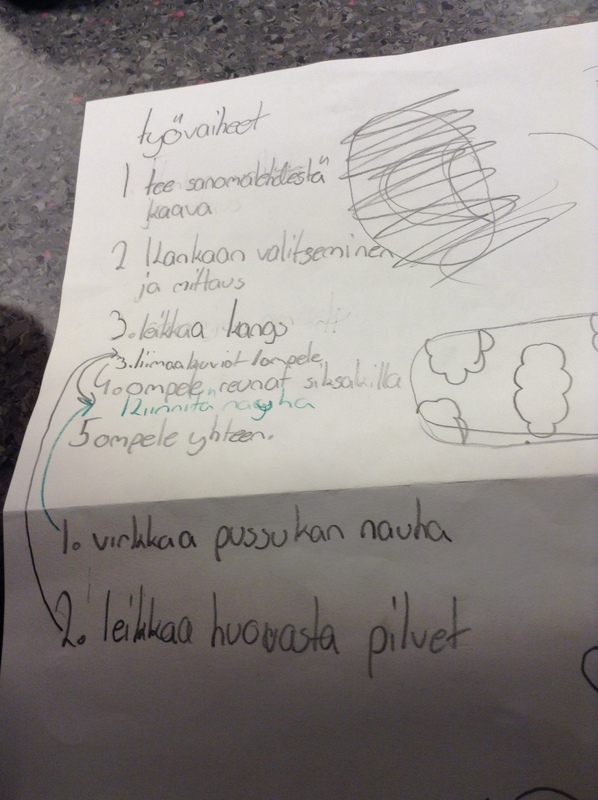 työvaiheet
1 tee sanomalehdestä
kaava
2 Kankaan valitseminen
ja mittaus
3. leikkaa kangs
3. liimaa kuviot / ompele
4. ompele reunat siksakilla
Kiinnitä nauha
5 ompele yhteen.
1. virkkaa pussukan nauha
2. leikkaa huovasta pilvet